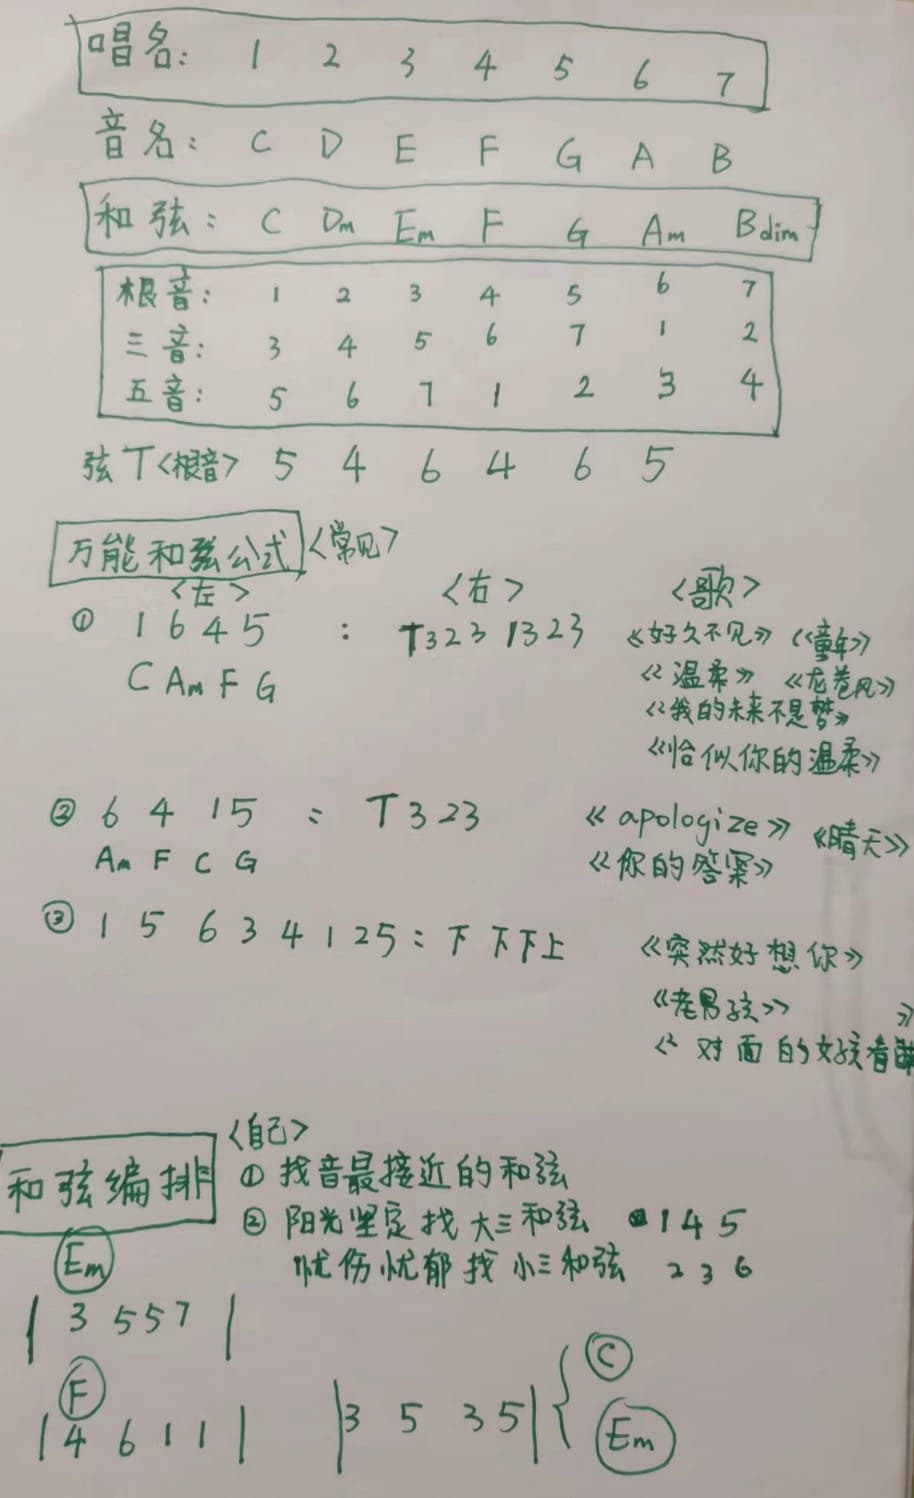 唱名: 1 2 3 4 5 6 7
音名: C D E F G A B
和弦: C Dm Em F G Am Bdim
根音: 1 2 3 4 5 6 7
三音: 3 4 5 6 7 1 2
五音: 5 6 7 1 2 3 4
弦T<根音> 5 4 6 4 6 5
万能和弦公式 <常见>
<左> <右> <歌>
① 1 6 4 5 : T323 1323 《好久不见》《童年》
C Am F G 《温柔》《龙卷风》
《我的未来不是梦》
《恰似你的温柔》
② 6 4 1 5 : T323 《apologize》《晴天》
Am F C G 《你的答案》
③ 1 5 6 3 4 1 2 5 : 下 下下上 《突然好想你》
《老男孩》 》
《对面的女孩看
和弦编排 <自己>
① 找音最接近的和弦
② 阳光坚定找大三和弦 1 4 5
忧伤忧郁找小三和弦 2 3 6
Em
| 3 5 5 7 |
F
| 4 6 1 1 | | 3 5 3 5 | { C
Em